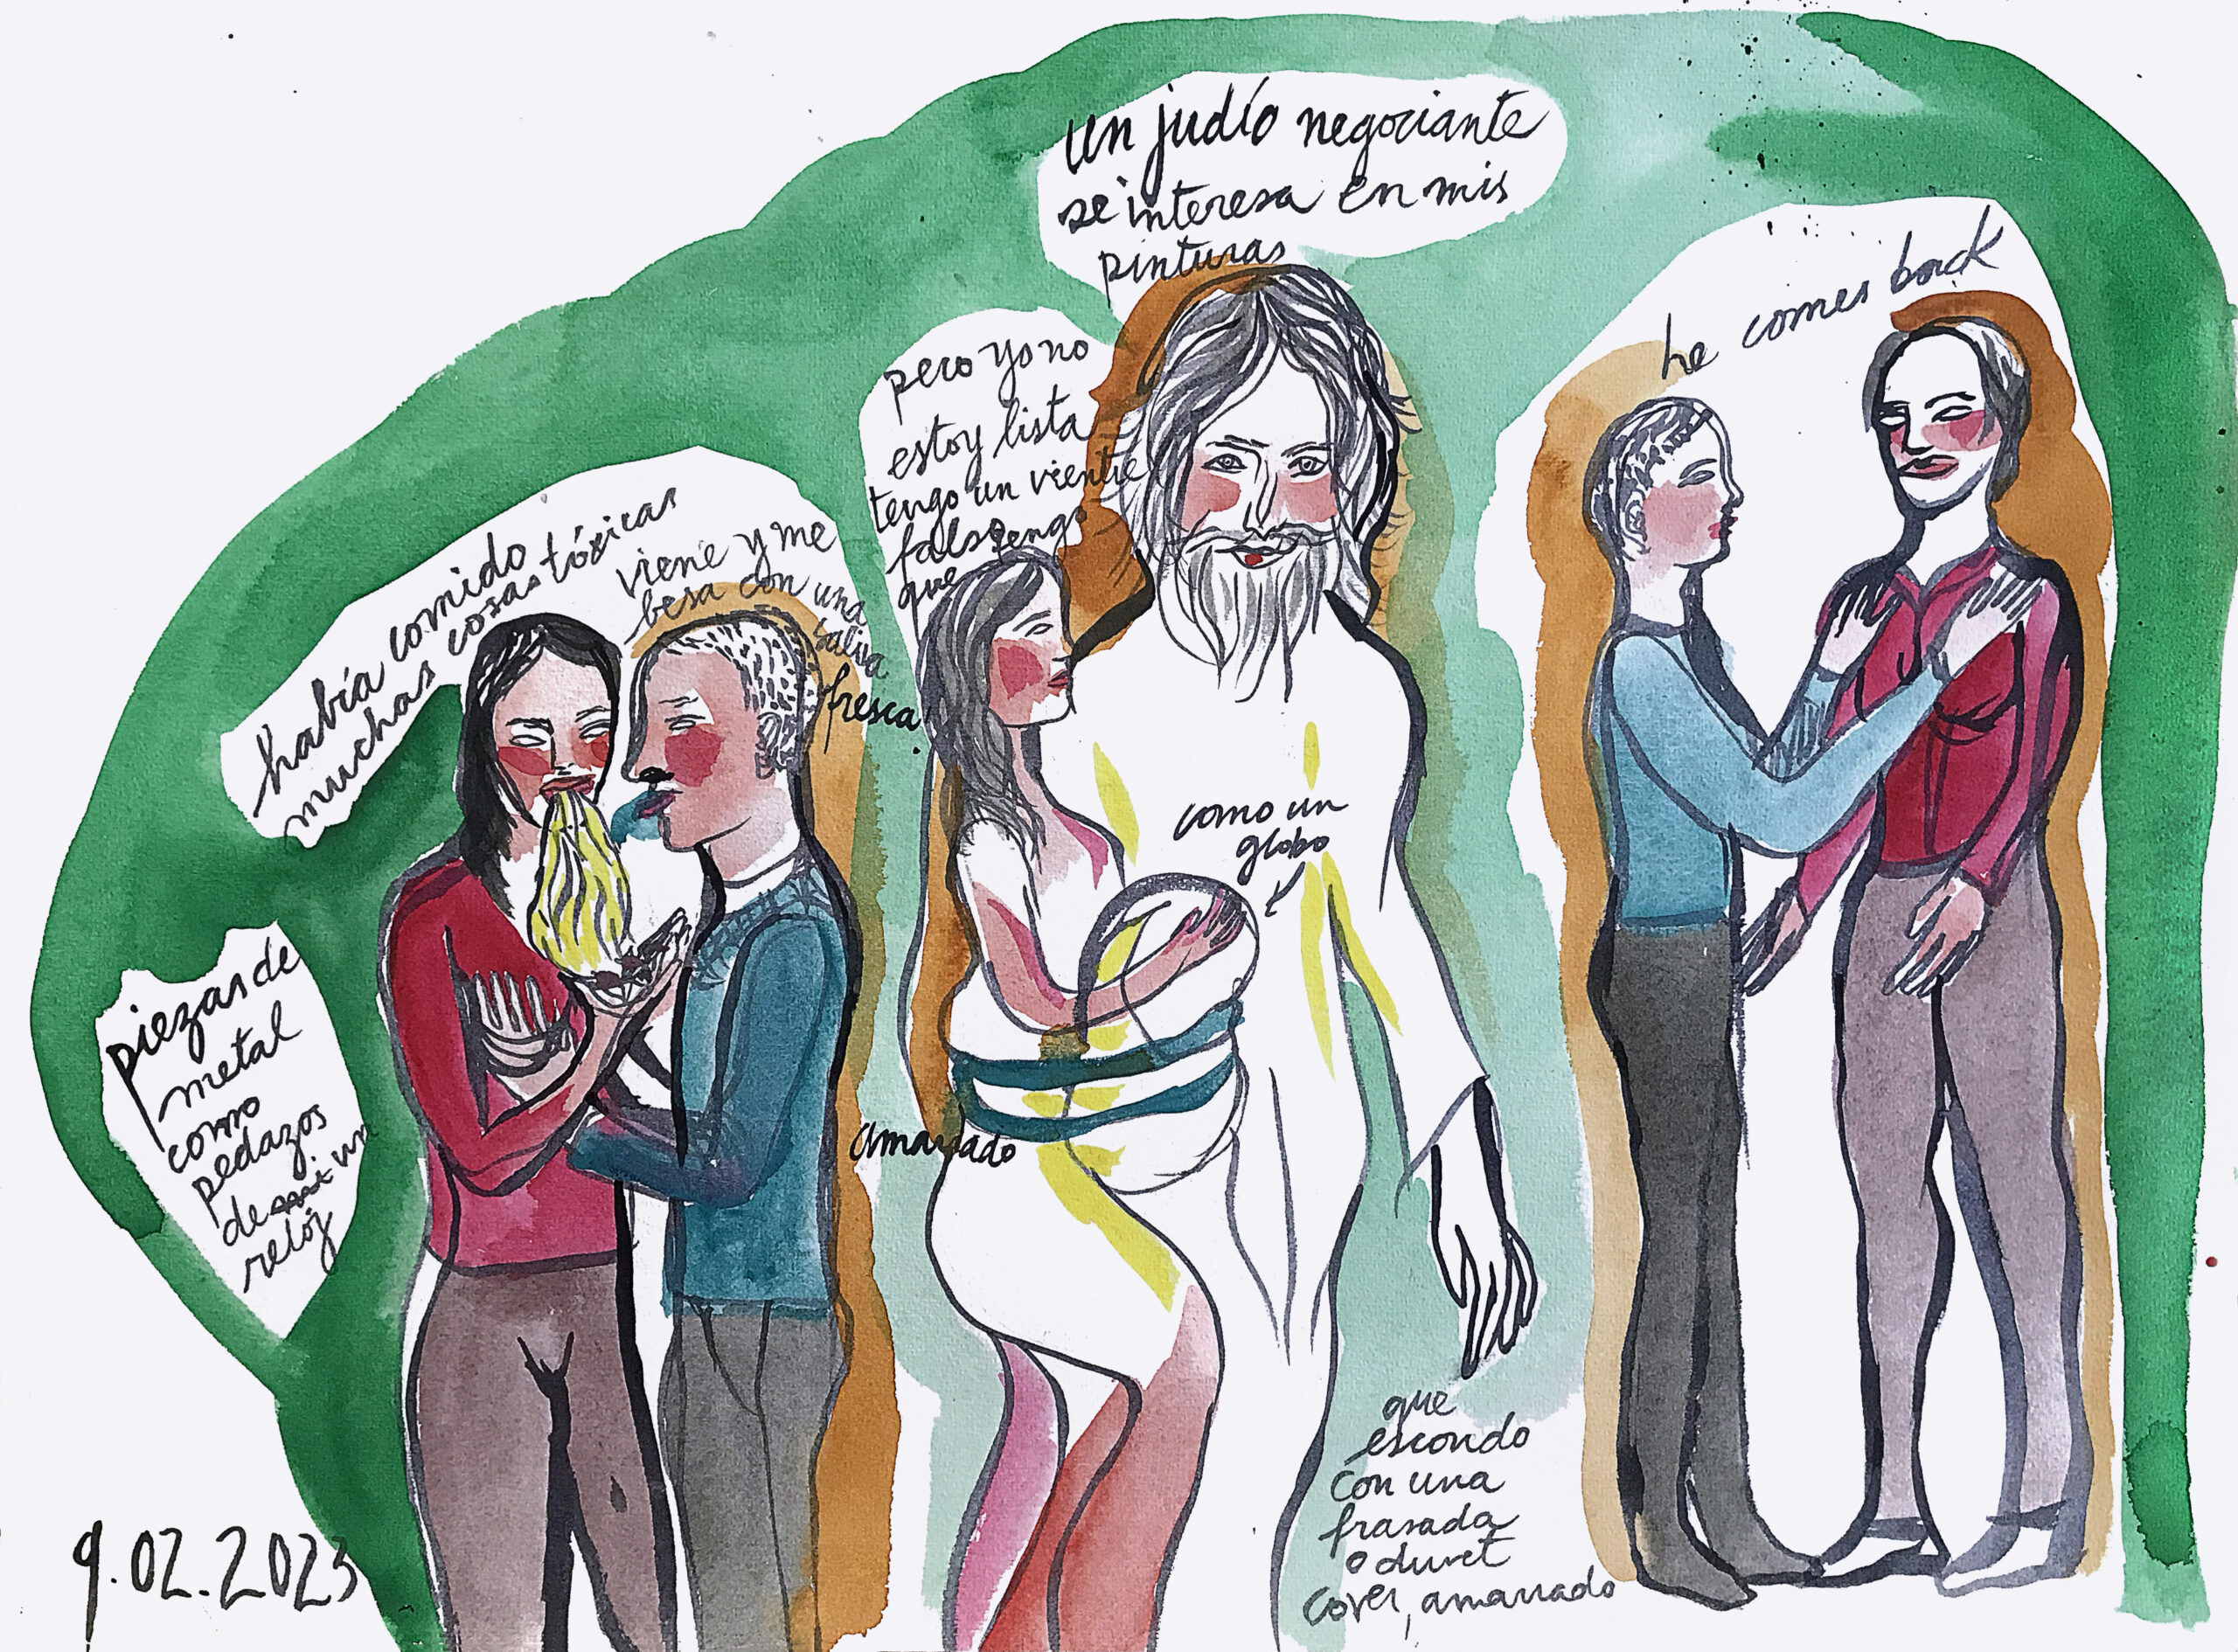 había comido
muchas cosas tóxicas
viene y me
besa con una
saliva
fresca
piezas de
metal
como
pedazos
de mi un
reloj
9.02.2023
un judío negociante
se interesa en mis
pinturas
pero yo no
estoy lista
tengo un vientre
falso tengo
que
como un
globo
amarrado
que
escondo
con una
frasada
o duvet
cover, amarrado
he comes back